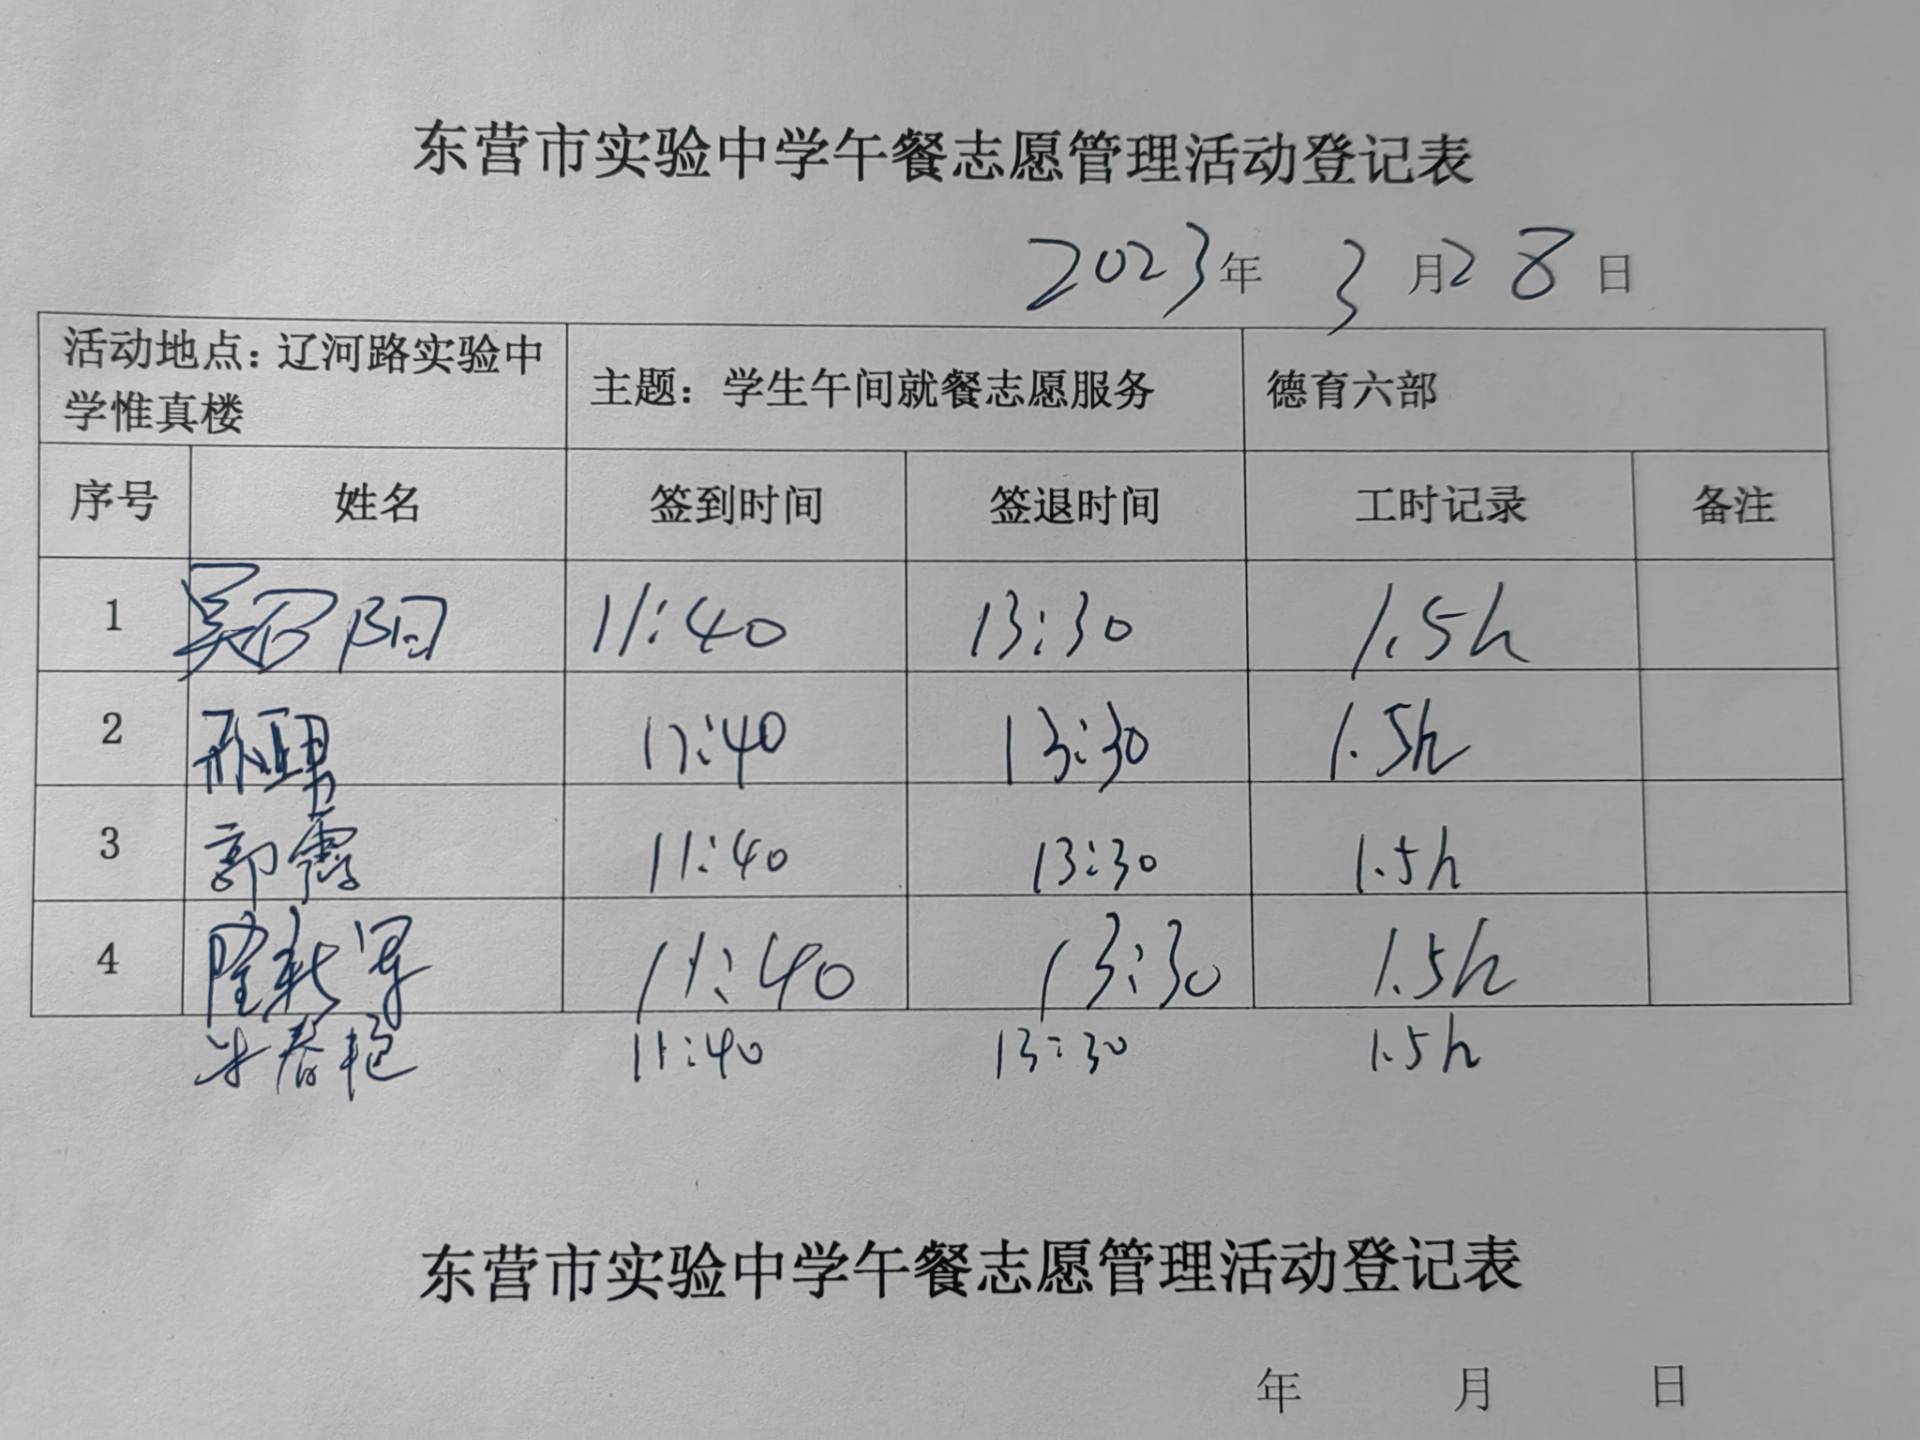 东营市实验中学午餐志愿管理活动登记表
2023年 3月28日
活动地点：辽河路实验中学惟真楼 主题：学生午间就餐志愿服务 德育六部
序号 姓名 签到时间 签退时间 工时记录 备注
1 吴召阳 11:40 13:30 1.5h
2 邢亚男 11:40 13:30 1.5h
3 郭霞 11:40 13:30 1.5h
4 隆新军 11:40 13:30 1.5h
春艳 11:40 13:30 1.5h
东营市实验中学午餐志愿管理活动登记表
年 月 日